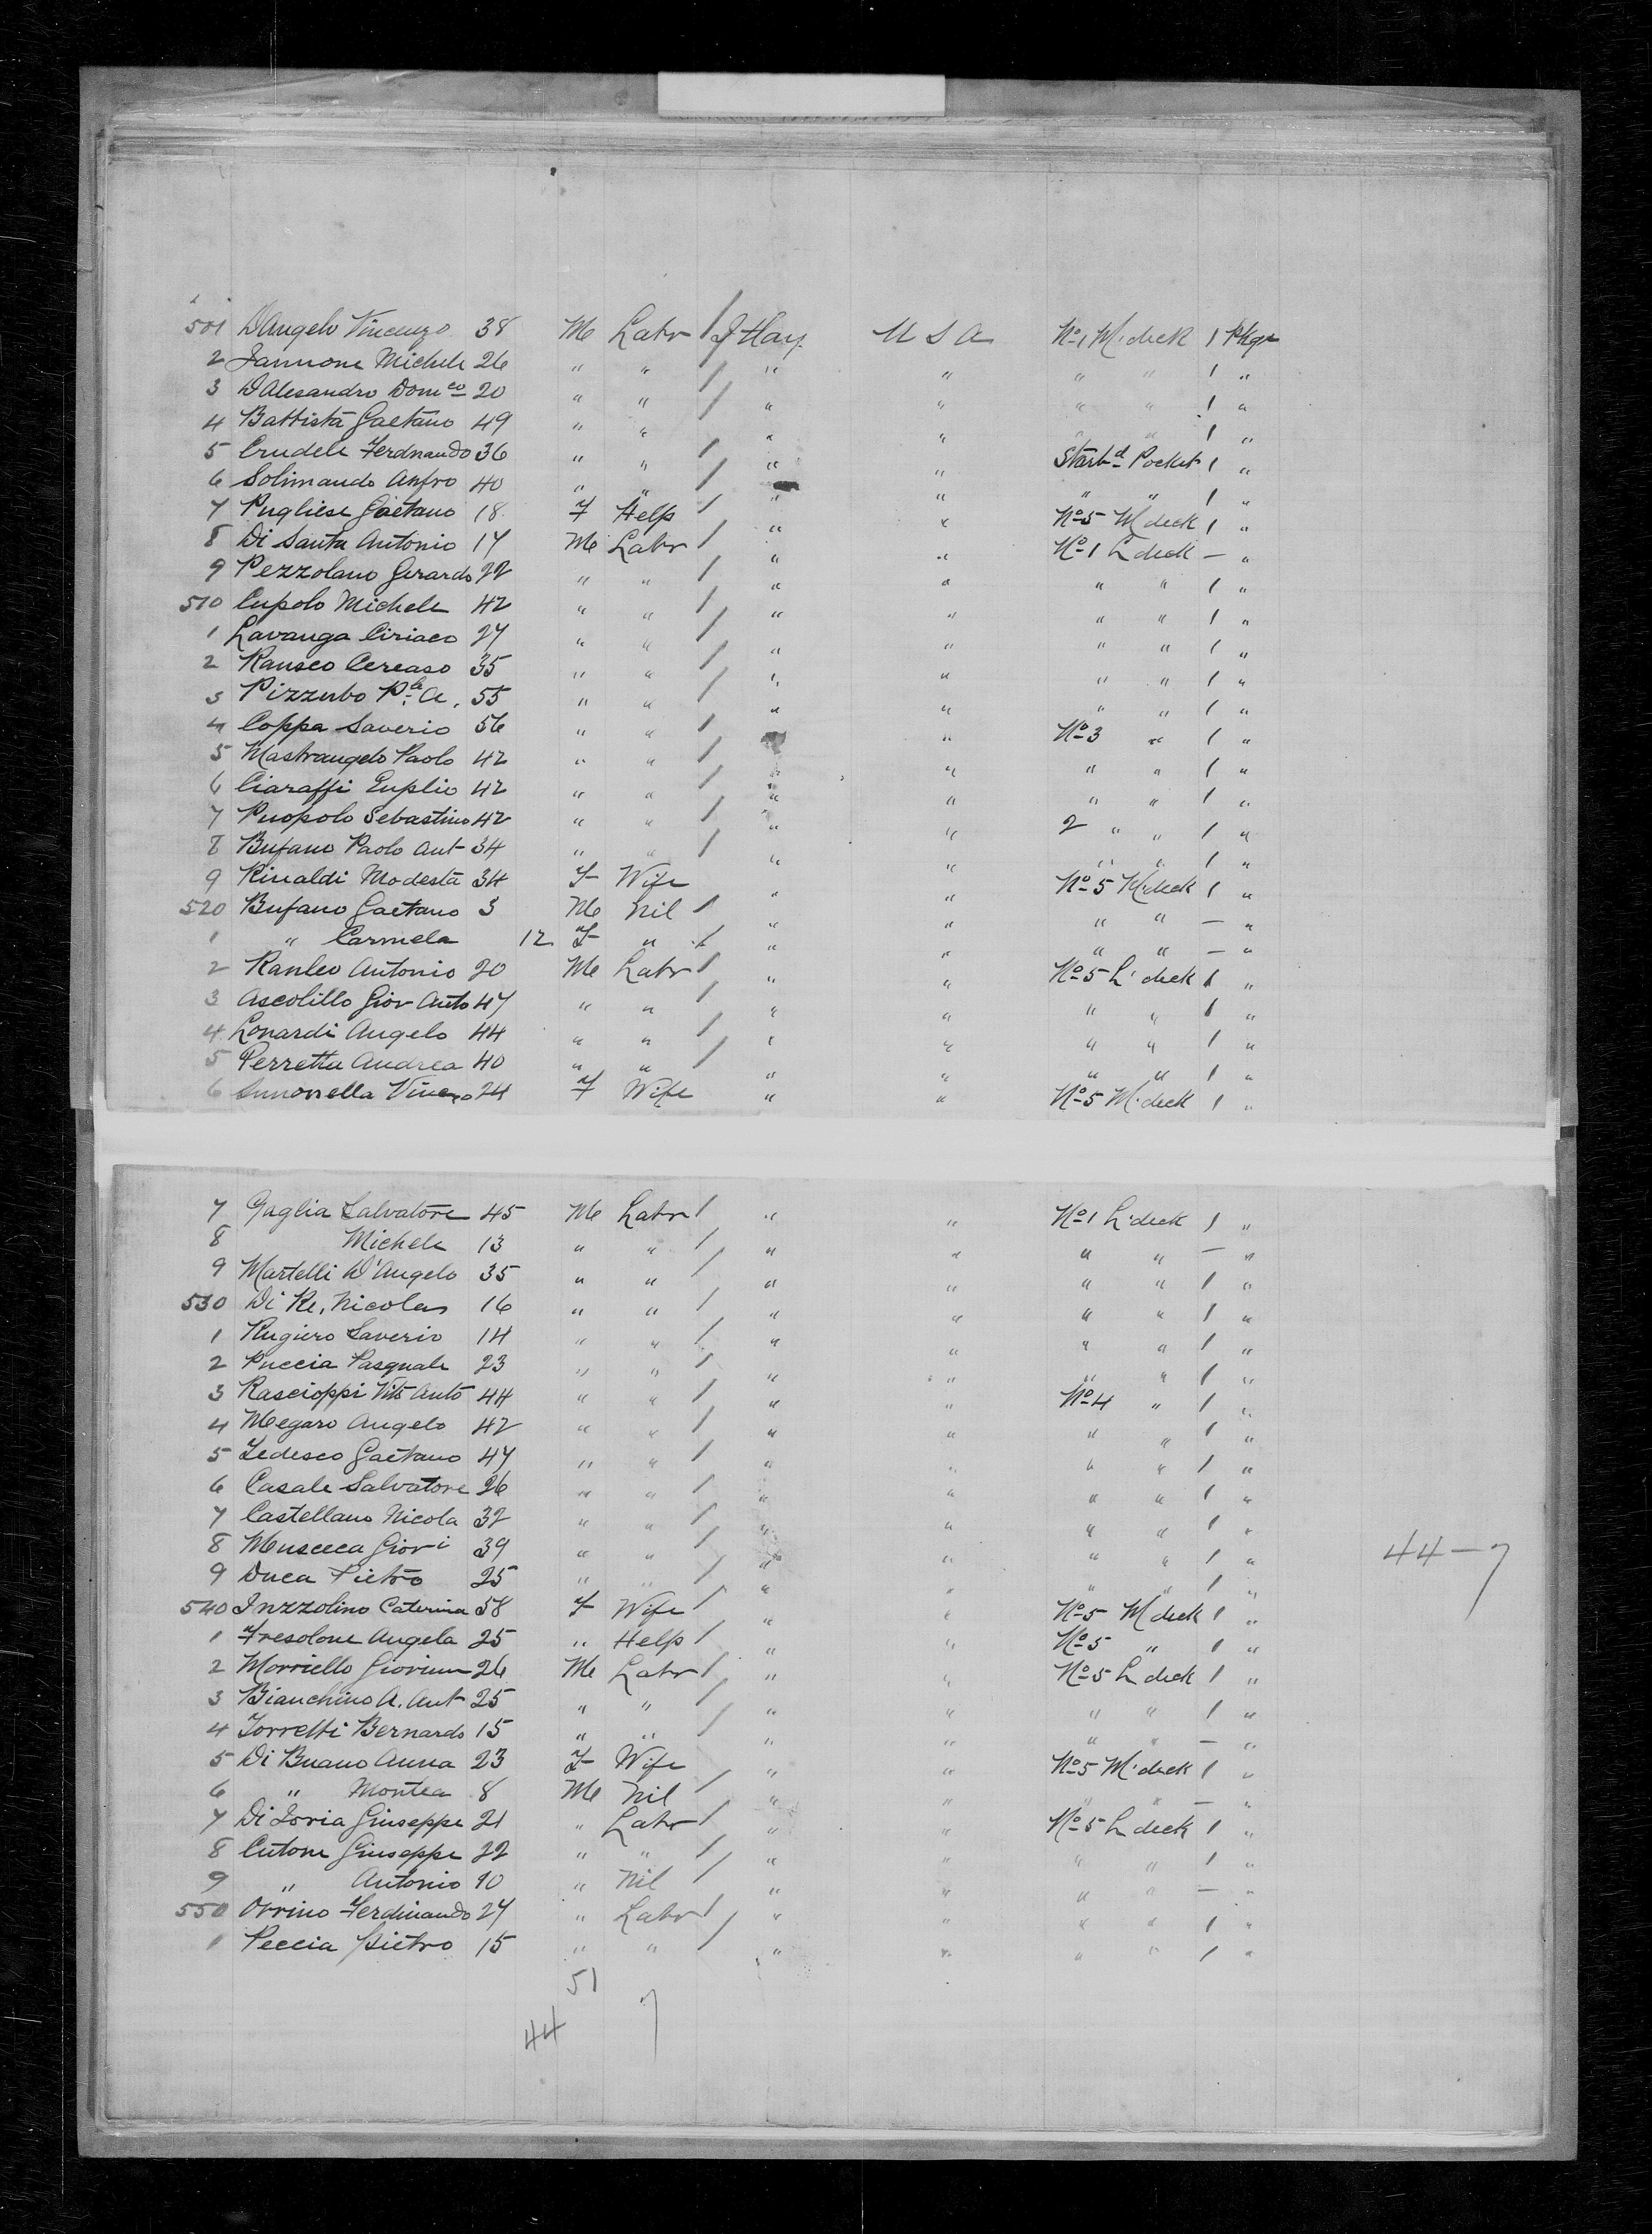 501 D'Angelo Vincenzo 38 M Labr / Italy U S A No 1 M. deck 1 Pkge
2 Iannone Michele 26 " " / " " " " 1 "
3 D'Alesandro Domco 20 " " / " " " " 1 "
4 Battista Gaetano 49 " " / " " " " 1 "
5 Crudele Ferdnando 36 " " / " " Starbd Pocket 1 "
6 Solimando Anfro 40 " " / " " " " 1 "
7 Pugliese Gaetano 18 F Help / " " No 5 M deck 1 "
8 Di Santa Antonio 17 M Labr / " " No 1 L deck — "
9 Pezzolano Gerardo 22 " " / " " " " 1 "
510 Cupolo Michele 42 " " / " " " " 1 "
1 Lavanga Ciriaco 27 " " / " " " " 1 "
2 Ranseo Cereaso 35 " " / " " " " 1 "
3 Pizzurbo Ple A. 55 " " / " " " " 1 "
4 Coppa Saverio 56 " " / " " No 3 " 1 "
5 Mastrangelo Paolo 42 " " / " " " " 1 "
6 Ciaraffi Euplio 42 " " / " " " " 1 "
7 Puopolo Sebastino 42 " " / " " 2 " " 1 "
8 Bufano Paolo Ant 34 " " / " " " " 1 "
9 Rinaldi Modesta 34 F Wife " " No 5 M. deck 1 "
520 Bufano Gaetano 3 M Nil / " " " " — "
1 " Carmela 12 F " / " " " " — "
2 Ranleo Antonio 20 M Labr / " " No 5 L. deck 1 "
3 Ascolillo Giov Anto 47 " " / " " " " 1 "
4 Lonardi Angelo 44 " " / " " " " 1 "
5 Perretta Andrea 40 " " / " " " " 1 "
6 Vincenzo 24 F Wife " " No 5 M. deck 1 "
7 Gaglia Salvatore 45 M Labr / " " No 1 L. deck 1 "
8 Michele 13 " " / " " " " — "
9 Martelli D'Angelo 35 " " / " " " " 1 "
530 Di Re, Nicolas 16 " " / " " " " 1 "
1 Rugiero Saverio 14 " " / " " " " 1 "
2 Puccia Pasquale 23 " " / " " " " 1 "
3 Rascioppi Vito Anto 44 " " / " " No 4 " 1 "
4 Megaro Angelo 42 " " / " " " " 1 "
5 Tedesco Gaetano 47 " " / " " " " 1 "
6 Casale Salvatore 26 " " / " " " " 1 "
7 Castellano Nicola 32 " " / " " " " 1 "
8 Musceca Giovi 39 " " / " " " " 1 " 44 — 7
9 Duca Pietro 25 " " / " " " " 1 "
540 Inzzolino Caterina 38 F Wife / " " No 5 M deck 1 "
1 Fresolone Angela 25 " Help / " " No 5 " 1 "
2 Morriello Giovinn 26 M Labr / " " No 5 L deck 1 "
3 Bianchino A. Ant 25 " " / " " " " 1 "
4 Torretti Bernardo 15 " " / " " " " — "
5 Di Buano Anna 23 F Wife " " No 5 M. deck 1 "
6 " Montea 8 M Nil / " " " " — "
7 Di Ioria Giuseppe 21 " Labr / " " No 5 L deck 1 "
8 Cutone Giuseppe 22 " " / " " " " 1 "
9 " Antonio 10 " Nil / " " " " — "
550 Orrino Ferdinando 27 " Labr / " " " " 1 "
1 Peccia Pietro 15 " " / " " " " 1 "
51
44 7